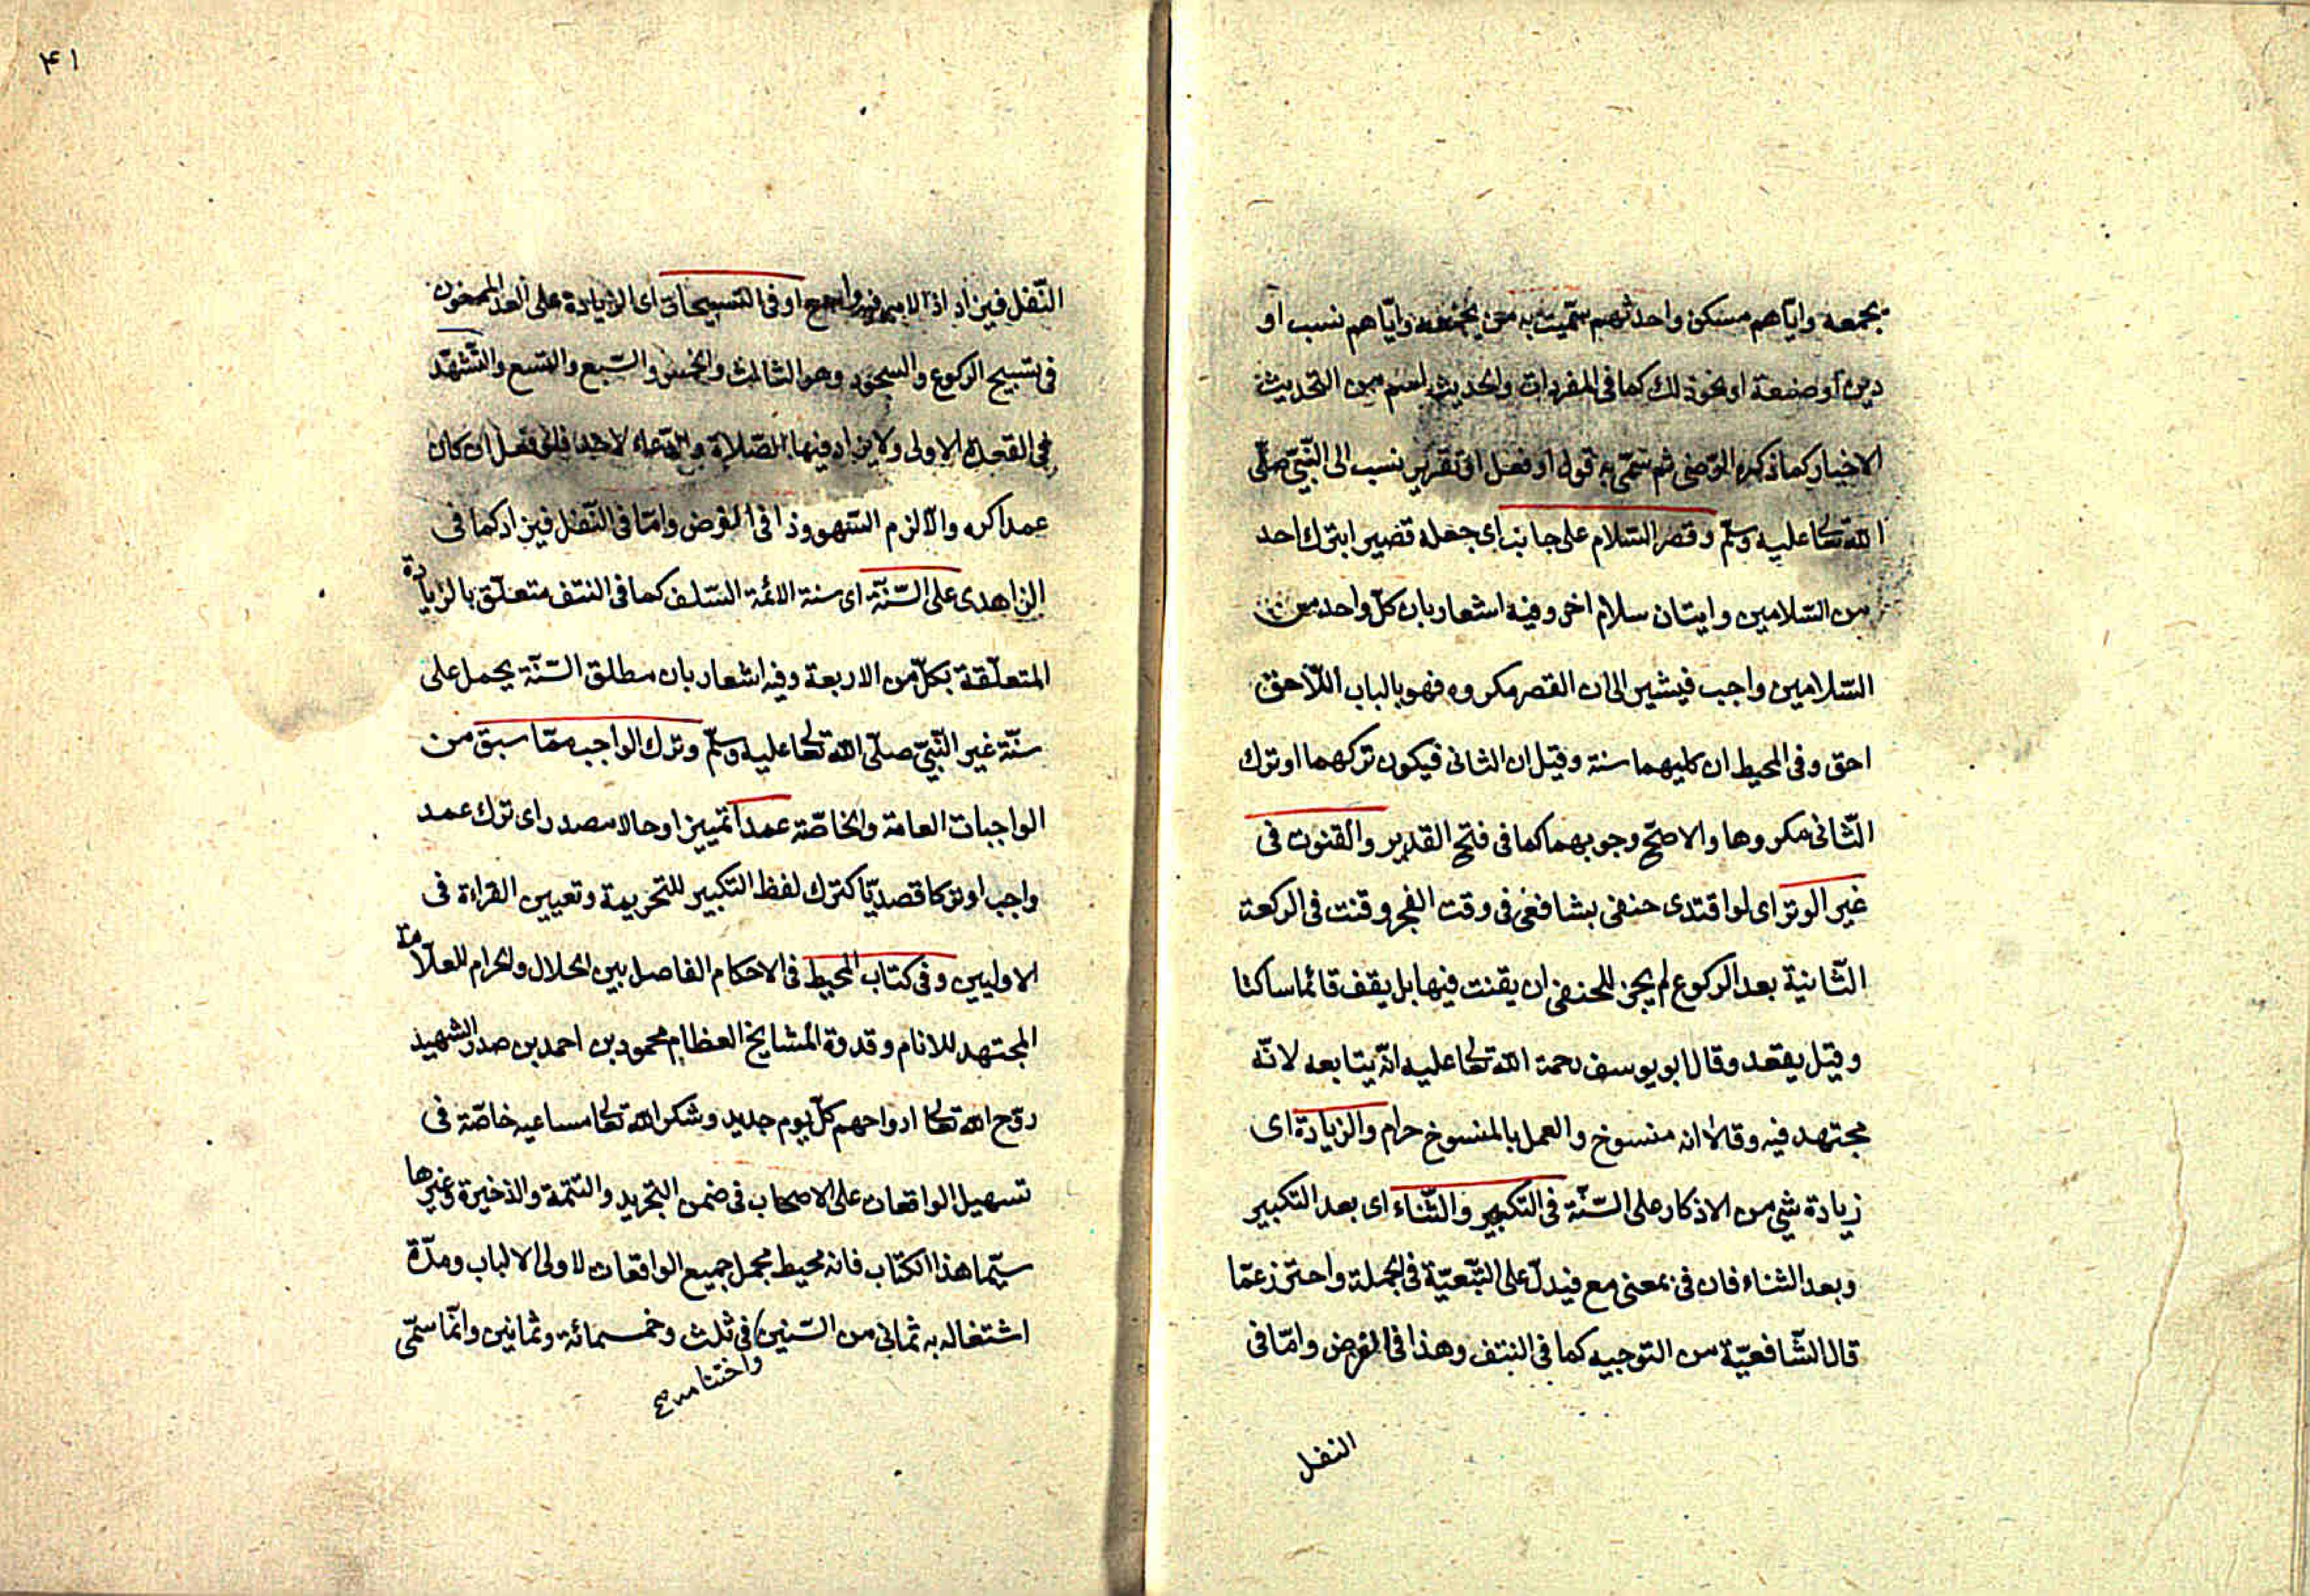 يجمعه واياهم مسكن واحد ثم سميت به من يجمعه واياهم نسب او
دين او صنعة او نحو ذلك كما فى المفردات والحديث اسم من التحديث
الاخبار كما ذكره الرضى ثم سمى به قول او فعل او تقرير نسب الى النبى صلى
الله تعا عليه وسلم وقصر السلام على جانب اى جعله قصيرا بترك احد
من السلامين واتيان سلام اخر وفيه اشعار بان كل واحد من
السلامين واجب فيشير الى ان القصر مكروه فهو بالباب اللاحق
احق وفى المحيط ان كليهما سنة وقيل ان الثانى فيكون تركهما او ترك
الثانى مكروها والاصح وجوبهما كما فى فتح القدير والقنوت فى
غير الوتر اى لو اقتدى حنفى بشافعى فى وقت الفجر وقنت فى الركعة
الثانية بعد الركوع لم يجز للحنفى ان يقنت فيها بل يقف قائما ساكتا
وقيل يقعد وقال ابو يوسف رحمة الله تعا عليه انه يتابعه لانه
مجتهد فيه وقالا انه منسوخ والعمل بالمنسوخ حرام والزيادة اى
زيادة شئ من الاذكار على السنة فى التكبير والثناء اى بعد التكبير
وبعد الثناء فان فى بمعنى مع فيدل على التبعية فى الجملة واحترز عما
قال الشافعية من التوجيه كما فى النتف وهذا فى الفرض واما فى
النفل
٤١
النفل فيزاد اوفى التسبيحات اى الزيادة على العدد المسنون
فى تسبيح الركوع والسجود وهو الثالث والخمس والسبع والتسع والتشهد
فى القعدة الاولى ولا يزاد فيها الصلاة والدعاء لاحد فان فعل ان كان
عمدا كره والا لزم السهو وذا فى الفرض واما فى النفل فيزاد كما فى
الزاهدى على السنة اى سنة الائمة السلف كما فى النتف متعلق بالزيادة
المتعلقة بكل من الاربعة وفيه اشعار بان مطلق السنة يحمل على
سنة غير النبى صلى الله تعا عليه وسلم وترك الواجب مما سبق من
الواجبات العامة والخاصة عمدا تمييز او حال او مصدر اى ترك عمد
واجب او تركا قصديا كترك لفظ التكبير للتحريمة وتعيين القراءة فى
الاوليين وفى كتاب المحيط فى الاحكام الفاصل بين الحلال والحرام للعلامة
المجتهد للانام وقدوة المشايخ العظام محمود بن احمد بن صدر الشهيد
روح الله تعا ارواحهم كل يوم جديد وشكر الله تعا مساعيه خاصة فى
تسهيل الواقعات على الاصحاب فى ضمن التجريد والتتمة والذخيرة وغيرها
سيما هذا الكتاب فانه محيط مجمل جميع الواقعات لاولى الالباب ومدة
اشتغاله به ثمانى من السنين فى ثلث وخمسمائة وثمانين وانما سمى
واختتامه صح